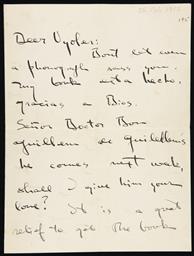 Dear Vyoler:
Don't eat even
a phonograph says you.
my book esta hecho,
gracias a Dios.
Señor Doctor Don
Guillem de Guilettens
he comes next week,
shall I give him your
love? It is a great
relief to get the book